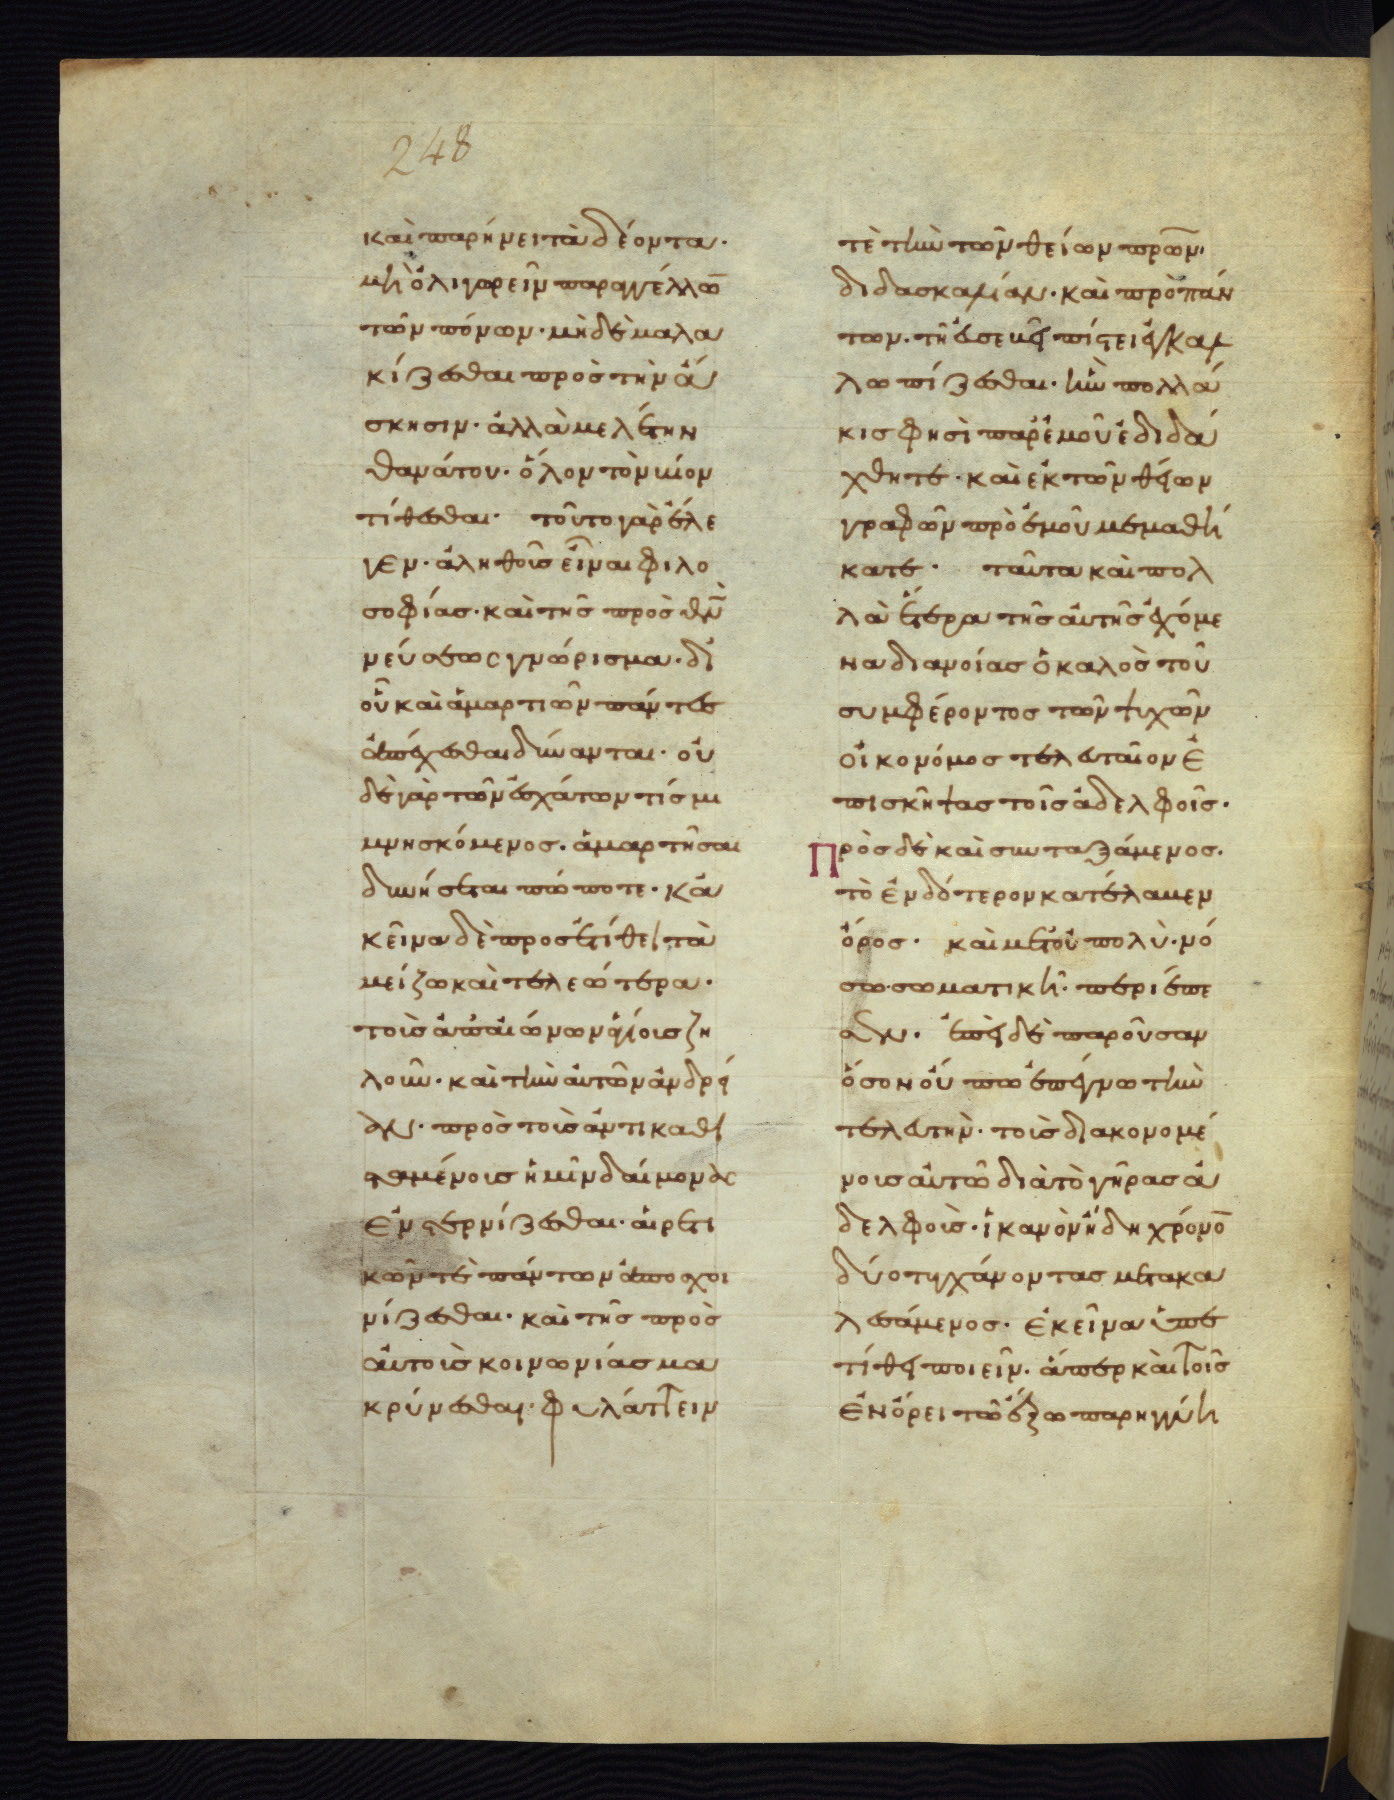 248
καὶ παρήνει τὰ δέοντα·
μὴ ὀλιγωρεῖν παραγγέλλω̅
τῶν πόνων· μὴ δὲ μαλα
κίζεσθαι πρὸς τὴν ἄ
σκησιν· ἀλλὰ μελέτην
θανάτου· ὅλον τὸν βίον
τίθεσθαι· τοῦτο γὰρ ἔλε
γεν· ἀληθοῦς εἶναι φιλο
σοφίας· καὶ τῆς πρὸς θν̅
νεύσεως γνώρισμα· δι
οὗ καὶ ἁμαρτιῶν πάντες
ἀπέχεσθαι δύνανται· οὐ
δὲ γὰρ τῶν ἐσχάτων τίς μι
μνησκόμενος· ἁμαρτῆσαι
δυνήσεται πώποτε· κἀ
κεῖνα δὲ προσετίθει τὰ
μείζω καὶ τελεώτερα·
τοὺς ἀπ' αἰώνων ἁγίους ζη
λοῦν· καὶ τὴν αὐτῶν ἀνδρεί
αν· πρὸς τοὺς ἀντικαθι
σταμένους ἡμῖν δαίμονας
ἐνστερνίζεσθαι· αἱρετι
κῶν τὲ πάντων ἀποσχοι
νίζεσθαι· καὶ τῆς πρὸς
αὐτοὺς κοινωνίας μα
κρύνεσθαι· φυλάττειν
τὲ τὴν τῶν θείων πρω̅ν·
διδασκαλίαν· καὶ πρὸ πάν
των· τῇ εὐσεβεῖ πίστει ἐγκαλ
λωπίζεσθαι· ἣν πολλά
κις φησὶ παρ' ἐμοῦ ἐδιδά
χθητε· καὶ ἐκ τῶν θείων
γραφῶν πρὸ ἐμοῦ μεμαθή
κατε· ταῦτα καὶ πολ
λὰ ἕτερα τῆς αὐτῆς ἐχόμε
να διανοίας ὁ καλὸς τοῦ
συμφέροντος τῶν ψυχῶν
οἰκονόμος τελευταῖον ἐ
πισκήψας τοῖς ἀδελφοῖς·
Πρὸς δὲ καὶ συνταξάμενος·
τὸ ἐνδότερον κατέλαβεν
ὄρος· καὶ μετ' οὐ πολὺ· νό
σω σωματικῆ· περιέπε
σεν· ἐπεὶ δὲ παροῦσαν
ὅσον οὔπω ἐπέγνω τὴν
τελευτὴν· τοὺς διακονομέ
νους αὐτῶ διὰ τὸ γῆρας ἀ
δελφοὺς· ἱκανὸν ἤδη χρόνο̅
δύο τυγχάνοντας μετακα
λεσάμενος· ἐκεῖνα ὑπε
τίθει ποιεῖν· ἅπερ καὶ τοῖς
ἐν ὄρει τῶ ἔξω παρηγγύη